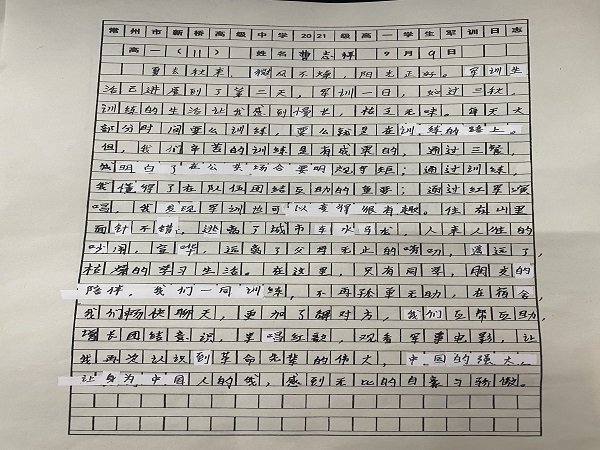 常州市新桥高级中学2021级高一学生军训日志
高一（11） 姓名 曹志祥 9月9日
夏去秋来，微风不燥，阳光正好。军训生
活已进展到了第二天，军训一日，如过三秋。
训练的生活让我感到慢长，枯乏无味。每天大
部分时间要么训练，要么就是在训练的路上。
但，我们辛苦的训练是有成果的，通过三餐，
我明白了在公共场合要明规守矩；通过训练，
我懂得了在队伍团结互助的重要；通过红军演
唱，我发现军训也可以变得很有趣。住在山里
面针不错，逃离了城市车水马龙，人来人往的
吵闹，喧哗，远离了父母无止的唠叨，远远了
枯燥的学习生活。在这里，只有同学，朋友的
陪伴，我们一同训练，不再孤单无助，在宿舍
我们畅快聊天，更加了解对方，我们互帮互助，
增长团结意识，唱红歌，观看军事电影，让
我再次认识到革命先辈的伟大，中国的强大，
让身为中国人的我，感到无比的自豪与骄傲。